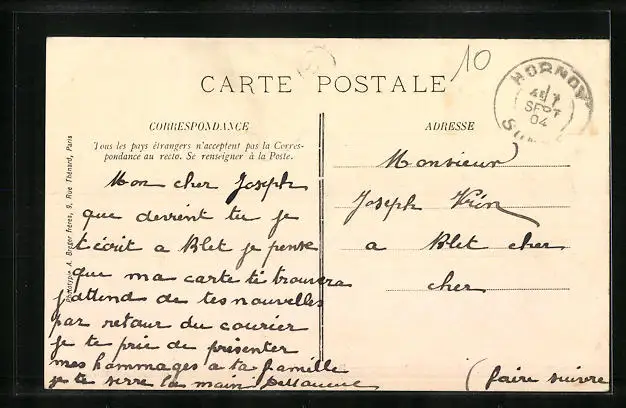 10
CARTE POSTALE
HORNOY
SEPT
04
CORRESPONDANCE
Tous les pays étrangers n'acceptent pas la Corres-
pondance au recto. Se renseigner à la Poste.
Phototypie A. Breger frères, 9, Rue Thénard, Paris
Mon cher Joseph
que devient tu je
t'écrit a Blet je pense
que ma carte ti trouvera
j'attend de tes nouvelles
par retour du courier
je te prie de présenter
mes hommages a ta famille
je te serre la main
ADRESSE
Monsieur
Joseph
a Blet cher
cher
(faire suivre